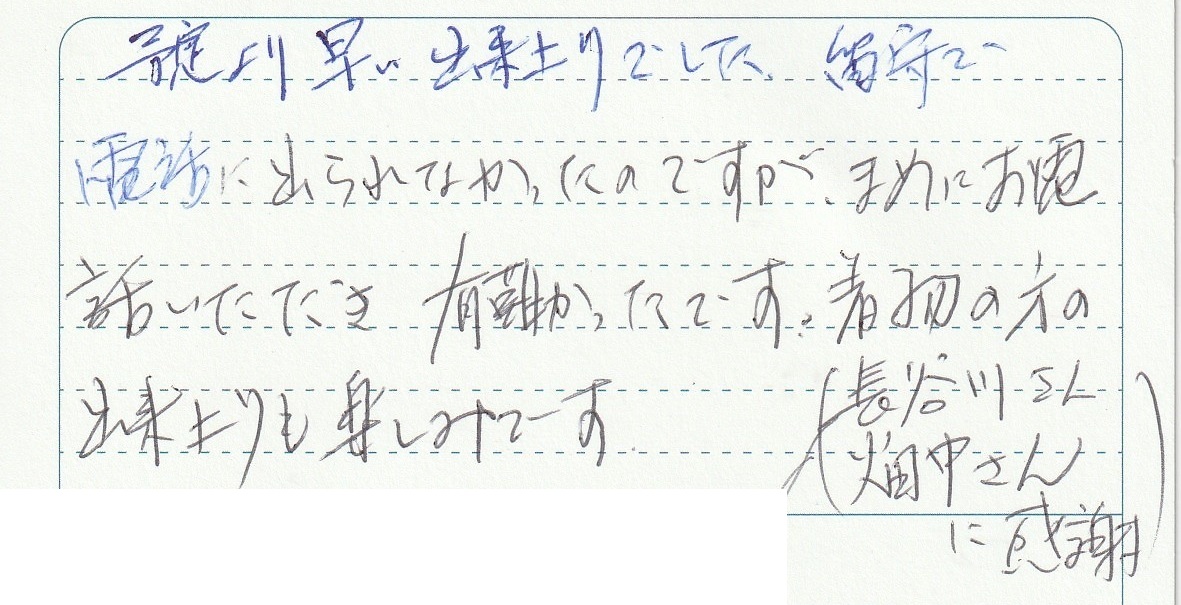 予定より早い出来上りでした。留守で
電話に出られなかったのですが、まめにお電
話いただき 有難かったです。着物の方の
出来上りも楽しみです。
(長谷川さん
畑中さん
に感謝)